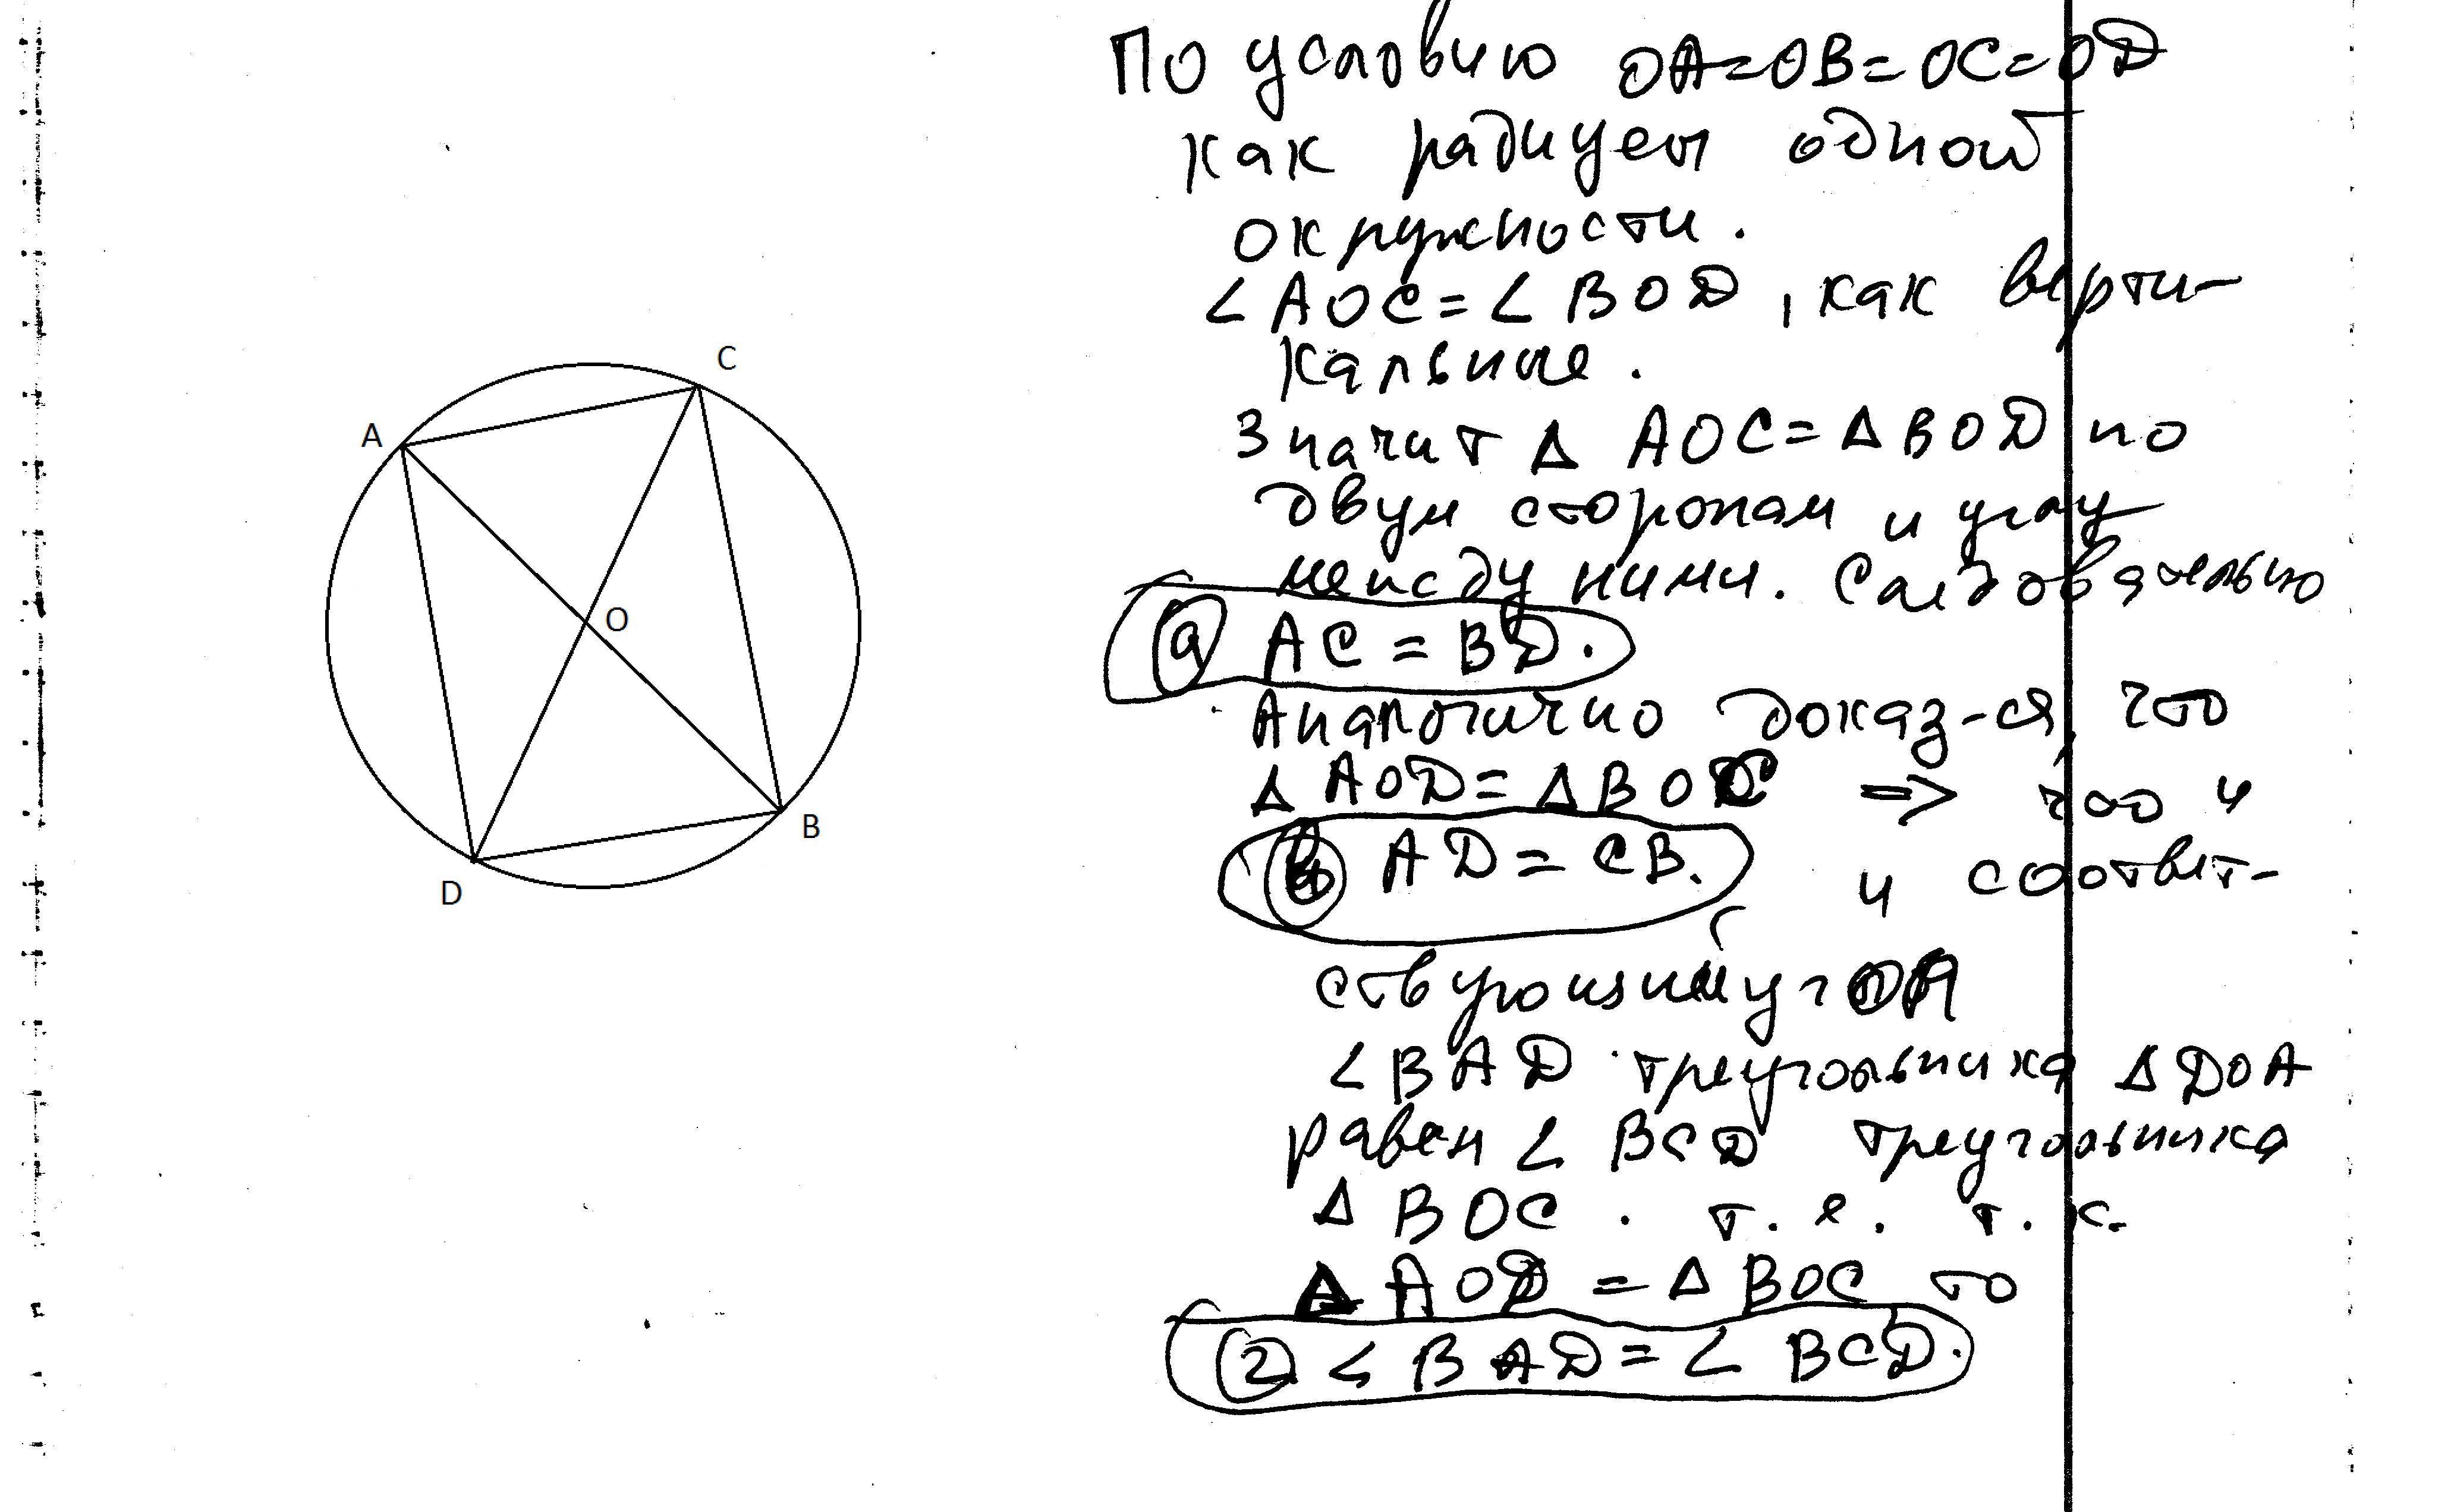 C
A
O
B
D
По условию OA=OB=OC=OD
как радиусы одной
окружности.
∠AOC=∠BOD, как верти-
кальные.
Значит Δ AOC=ΔBOD по
двум сторонам и углу
между ними. Следовательно
а AC=BD.
Аналогично доказ-ся, что
ΔAOD=ΔBOC => что и
AD=CB. и соответ-
ствующий угол
∠BAD треугольника ΔDOA
равен ∠BCD треугольника
ΔBOC. т.е. т.к.
Δ AOD = Δ BOC то
2 ∠BAD=∠BCD.